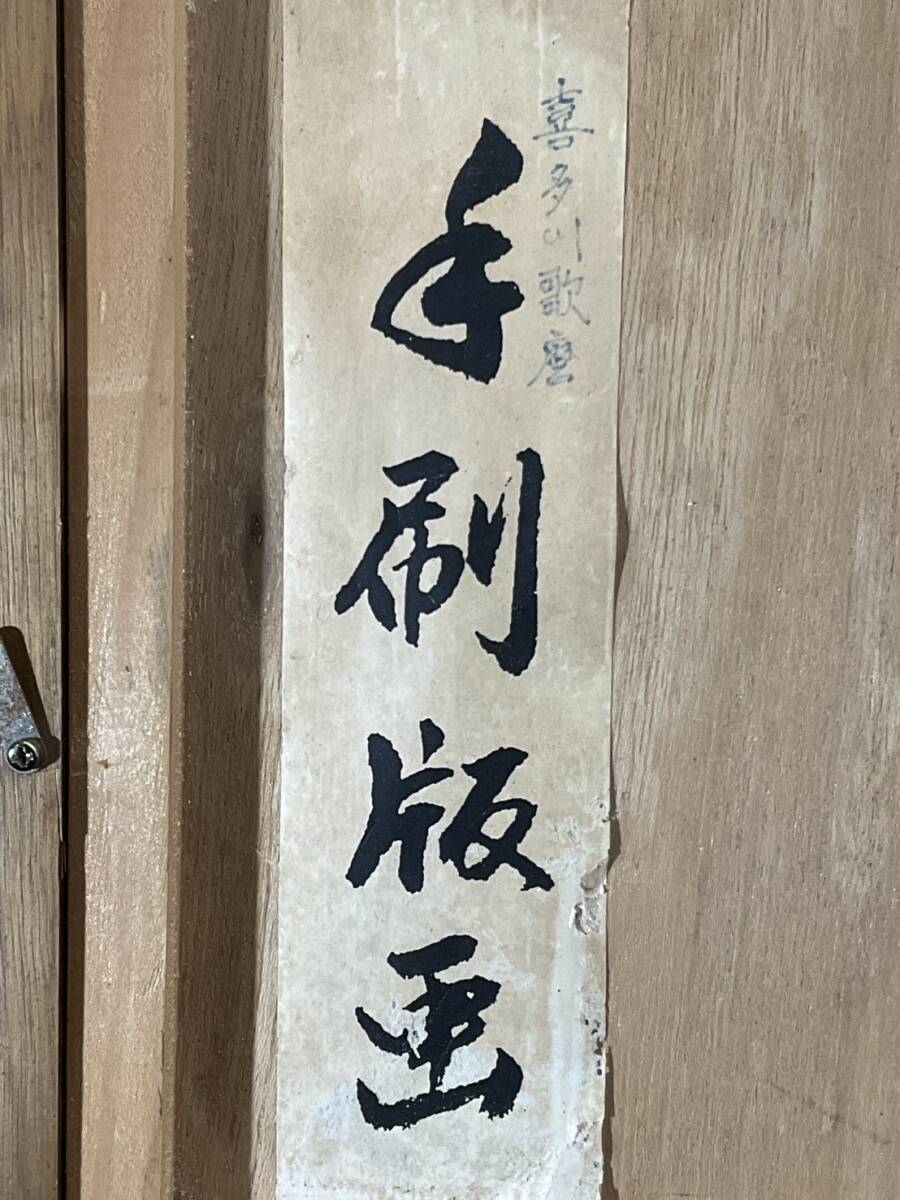 喜多川歌麿
手刷版画